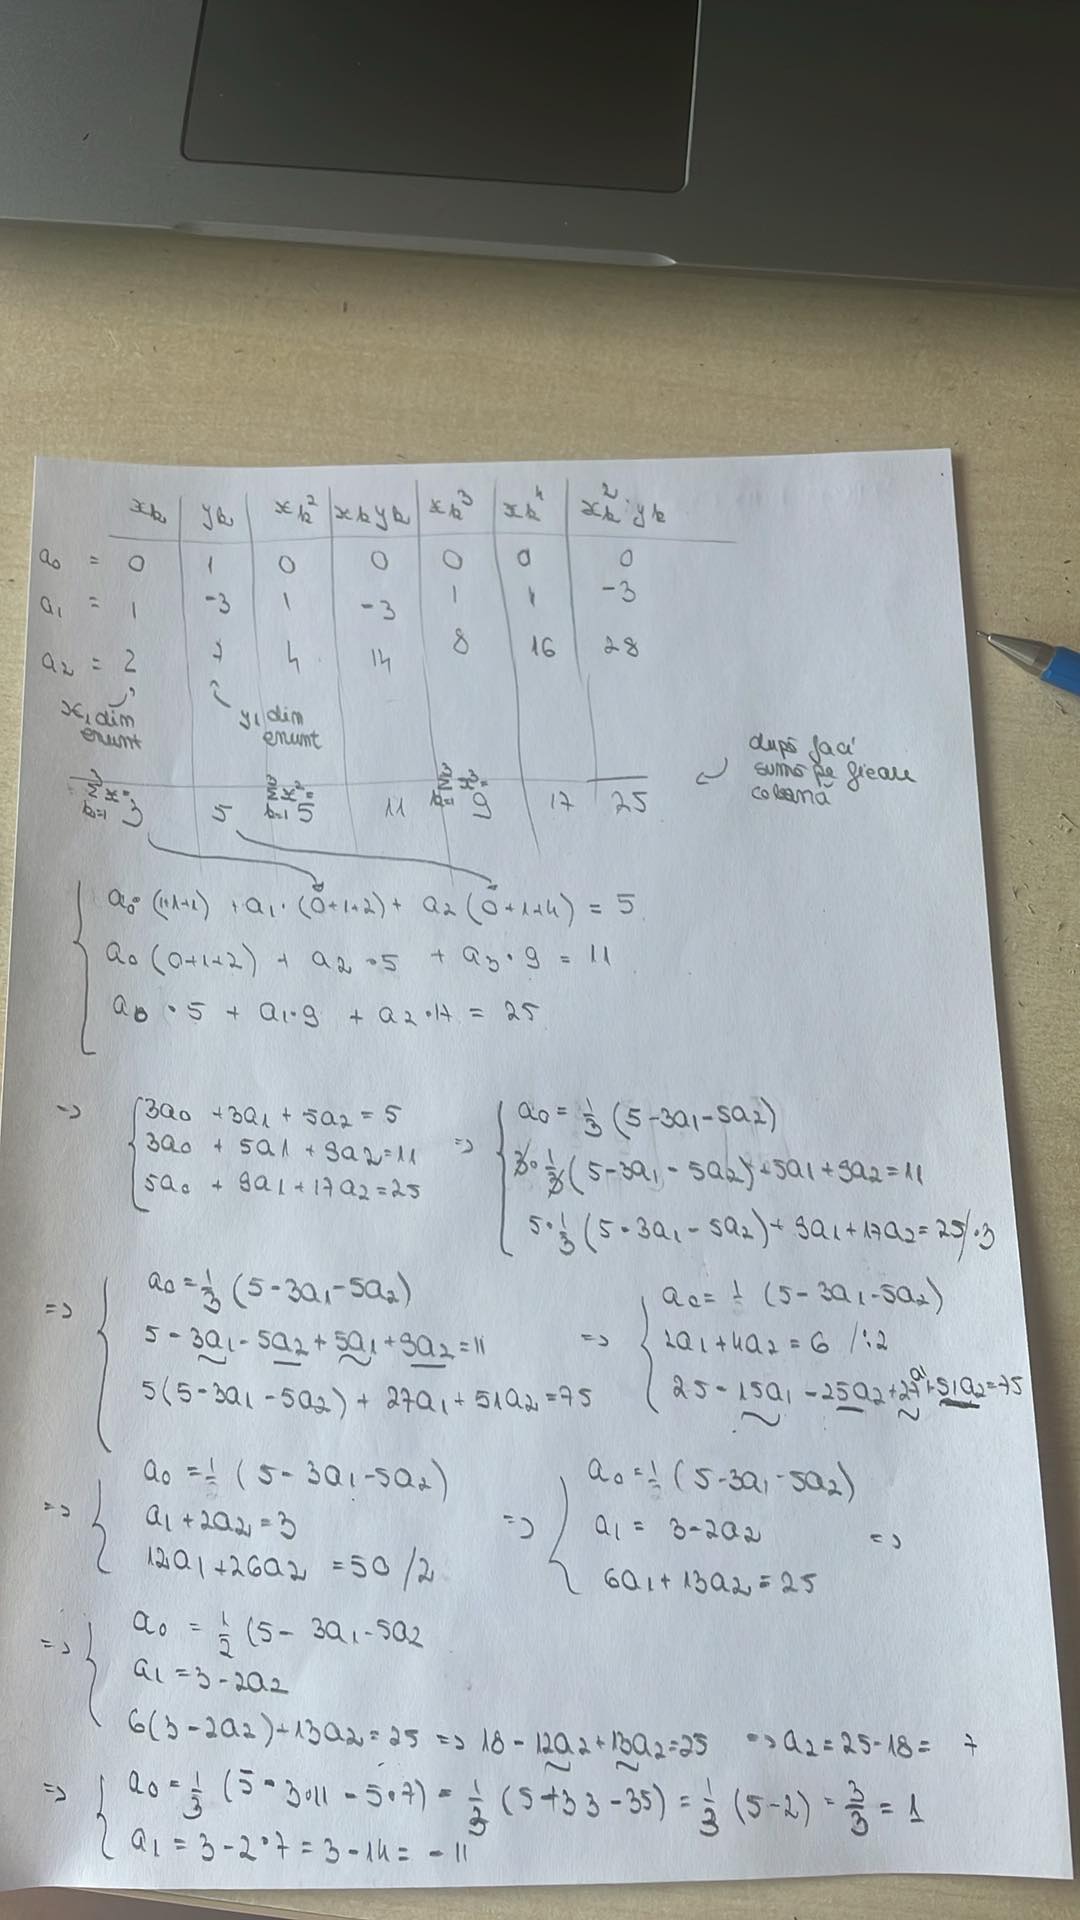 xk yk xk² xkyk xk³ xk⁴ xk²·yk
a0 = 0 1 0 0 0 0 0
a1 = 1 -3 1 -3 1 1 -3
a2 = 2 7 4 14 8 16 28
x1 din enunt
y1 din enunt
după faci
suma pe fiecare
coloană
3
Σ x =
k=1 3 5
3
Σ x² =
k=1 5 11
3
Σ x³ =
k=1 9 17 25
a0·(1+1+1) + a1·(0+1+2) + a2(0+1+4) = 5
a0(0+1+2) + a2·5 + a3·9 = 11
a0·5 + a1·9 + a2·17 = 25
=> 3a0 + 3a1 + 5a2 = 5
3a0 + 5a1 + 9a2 = 11
5a0 + 9a1 + 17a2 = 25
=> a0 = 1/3 (5-3a1-5a2)
3·1/3(5-3a1-5a2)+5a1+9a2=11
5·1/3(5-3a1-5a2)+9a1+17a2=25/·3
=> a0 = 1/3 (5-3a1-5a2)
5-3a1-5a2+5a1+9a2=11
5(5-3a1-5a2)+27a1+51a2=75
=> a0 = 1 (5-3a1-5a2)
2a1+4a2=6 /:2
25-15a1-25a2+27a1+51a2=75
=> a0 = 1 (5-3a1-5a2)
a1+2a2=3
12a1+26a2=50/2
=> a0 = 1 (5-3a1-5a2)
a1 = 3-2a2 =>
6a1+13a2=25
=> a0 = 1/2 (5-3a1-5a2
a1=3-2a2
6(3-2a2)+13a2=25 => 18-12a2+13a2=25 => a2=25-18= 7
=> a0 = 1/3 (5-3·11-5·7) = 1/3 (5+33-35) = 1/3 (5-2) = 3/3 = 1
a1 = 3-2·7 = 3-14 = -11